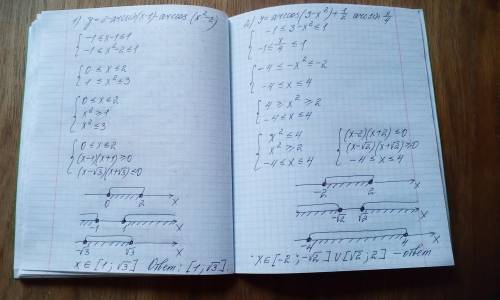 1) y = 2 arcsin(x-1) + arccos(x²-2)
{ -1 ≤ x-1 ≤ 1
-1 ≤ x²-2 ≤ 1
{ 0 ≤ x ≤ 2
1 ≤ x² ≤ 3
{ 0 ≤ x ≤ 2
x² ≥ 1
x² ≤ 3
{ 0 ≤ x ≤ 2
(x-1)(x+1) ≥ 0
(x-√3)(x+√3) ≤ 0
0 2 x
-1 1 x
-√3 √3 x
x ∈ [1; √3] Ответ: [1; √3]
2) y = arccos(3-x²) + 1/2 arcsin x/4
{ -1 ≤ 3-x² ≤ 1
-1 ≤ x/4 ≤ 1
{ -4 ≤ -x² ≤ -2
-4 ≤ x ≤ 4
{ 4 ≥ x² ≥ 2
-4 ≤ x ≤ 4
{ x² ≤ 4
x² ≥ 2
-4 ≤ x ≤ 4
{ (x-2)(x+2) ≤ 0
(x-√2)(x+√2) ≥ 0
-4 ≤ x ≤ 4
-2 2 x
-√2 √2 x
-4 4 x
x ∈ [-2; -√2] U [√2; 2] - ответ